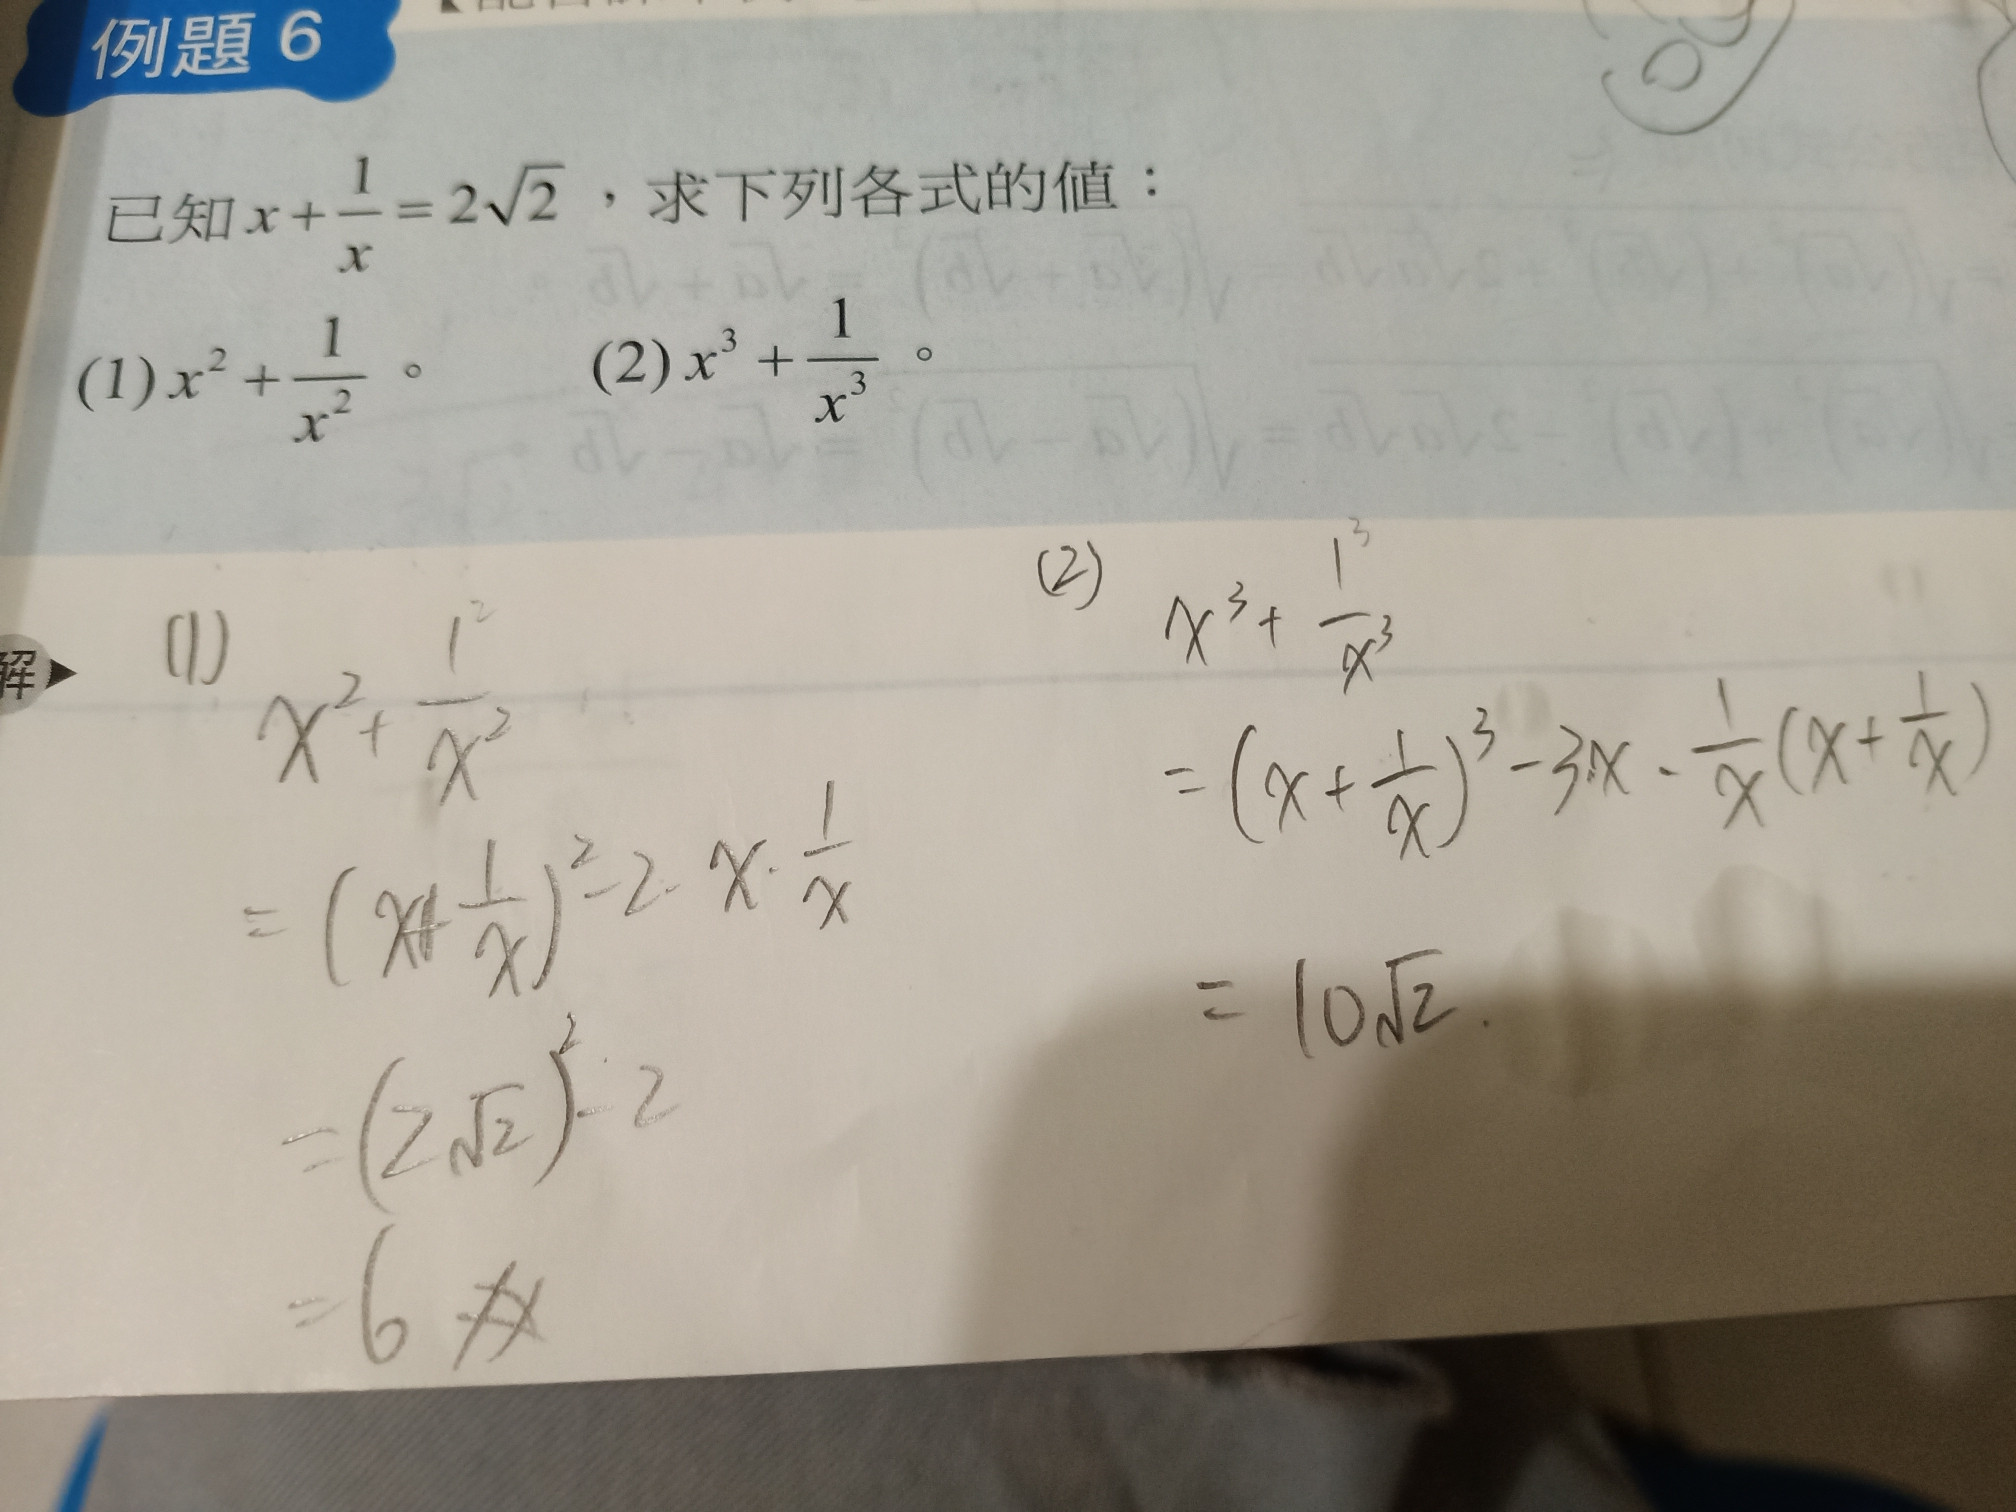 例題 6
已知 x + 1/x = 2√2 ，求下列各式的值：
(1) x² + 1/x² 。 (2) x³ + 1/x³ 。
解
(1)
x² + 1²/x²
= (x + 1/x)² - 2 · x · 1/x
= (2√2)² - 2
= 6
(2)
x³ + 1³/x³
= (x + 1/x)³ - 3x · 1/x (x + 1/x)
= 10√2 .